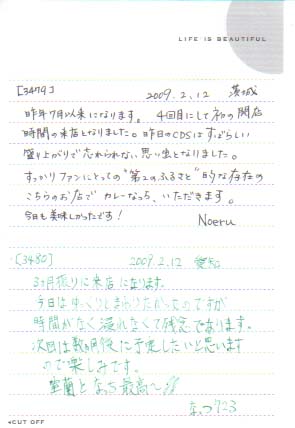 LIFE IS BEAUTIFUL
[3479] 2009.2.12 茨城
昨年7月以来になります。4回目にして初の開店
時間の来店となりました。昨日のCDSはすばらしい
盛り上がりで忘れられない思い出となりました。
すっかりファンにとっての"第2のふるさと"的な存在の
こちらのお店でカレーなっち、いただきます。
今日も美味しかったです!
Noeru
[3480] 2009.2.12 愛知
3ヶ月振りに来店になります。
今日はゆっくりしまわりたかったのですが
時間がなく滞れなくて残念であります。
次回は数ヶ月後に予定したいと思います
ので楽しみです。
室蘭となっち最高〜
CUT OFF